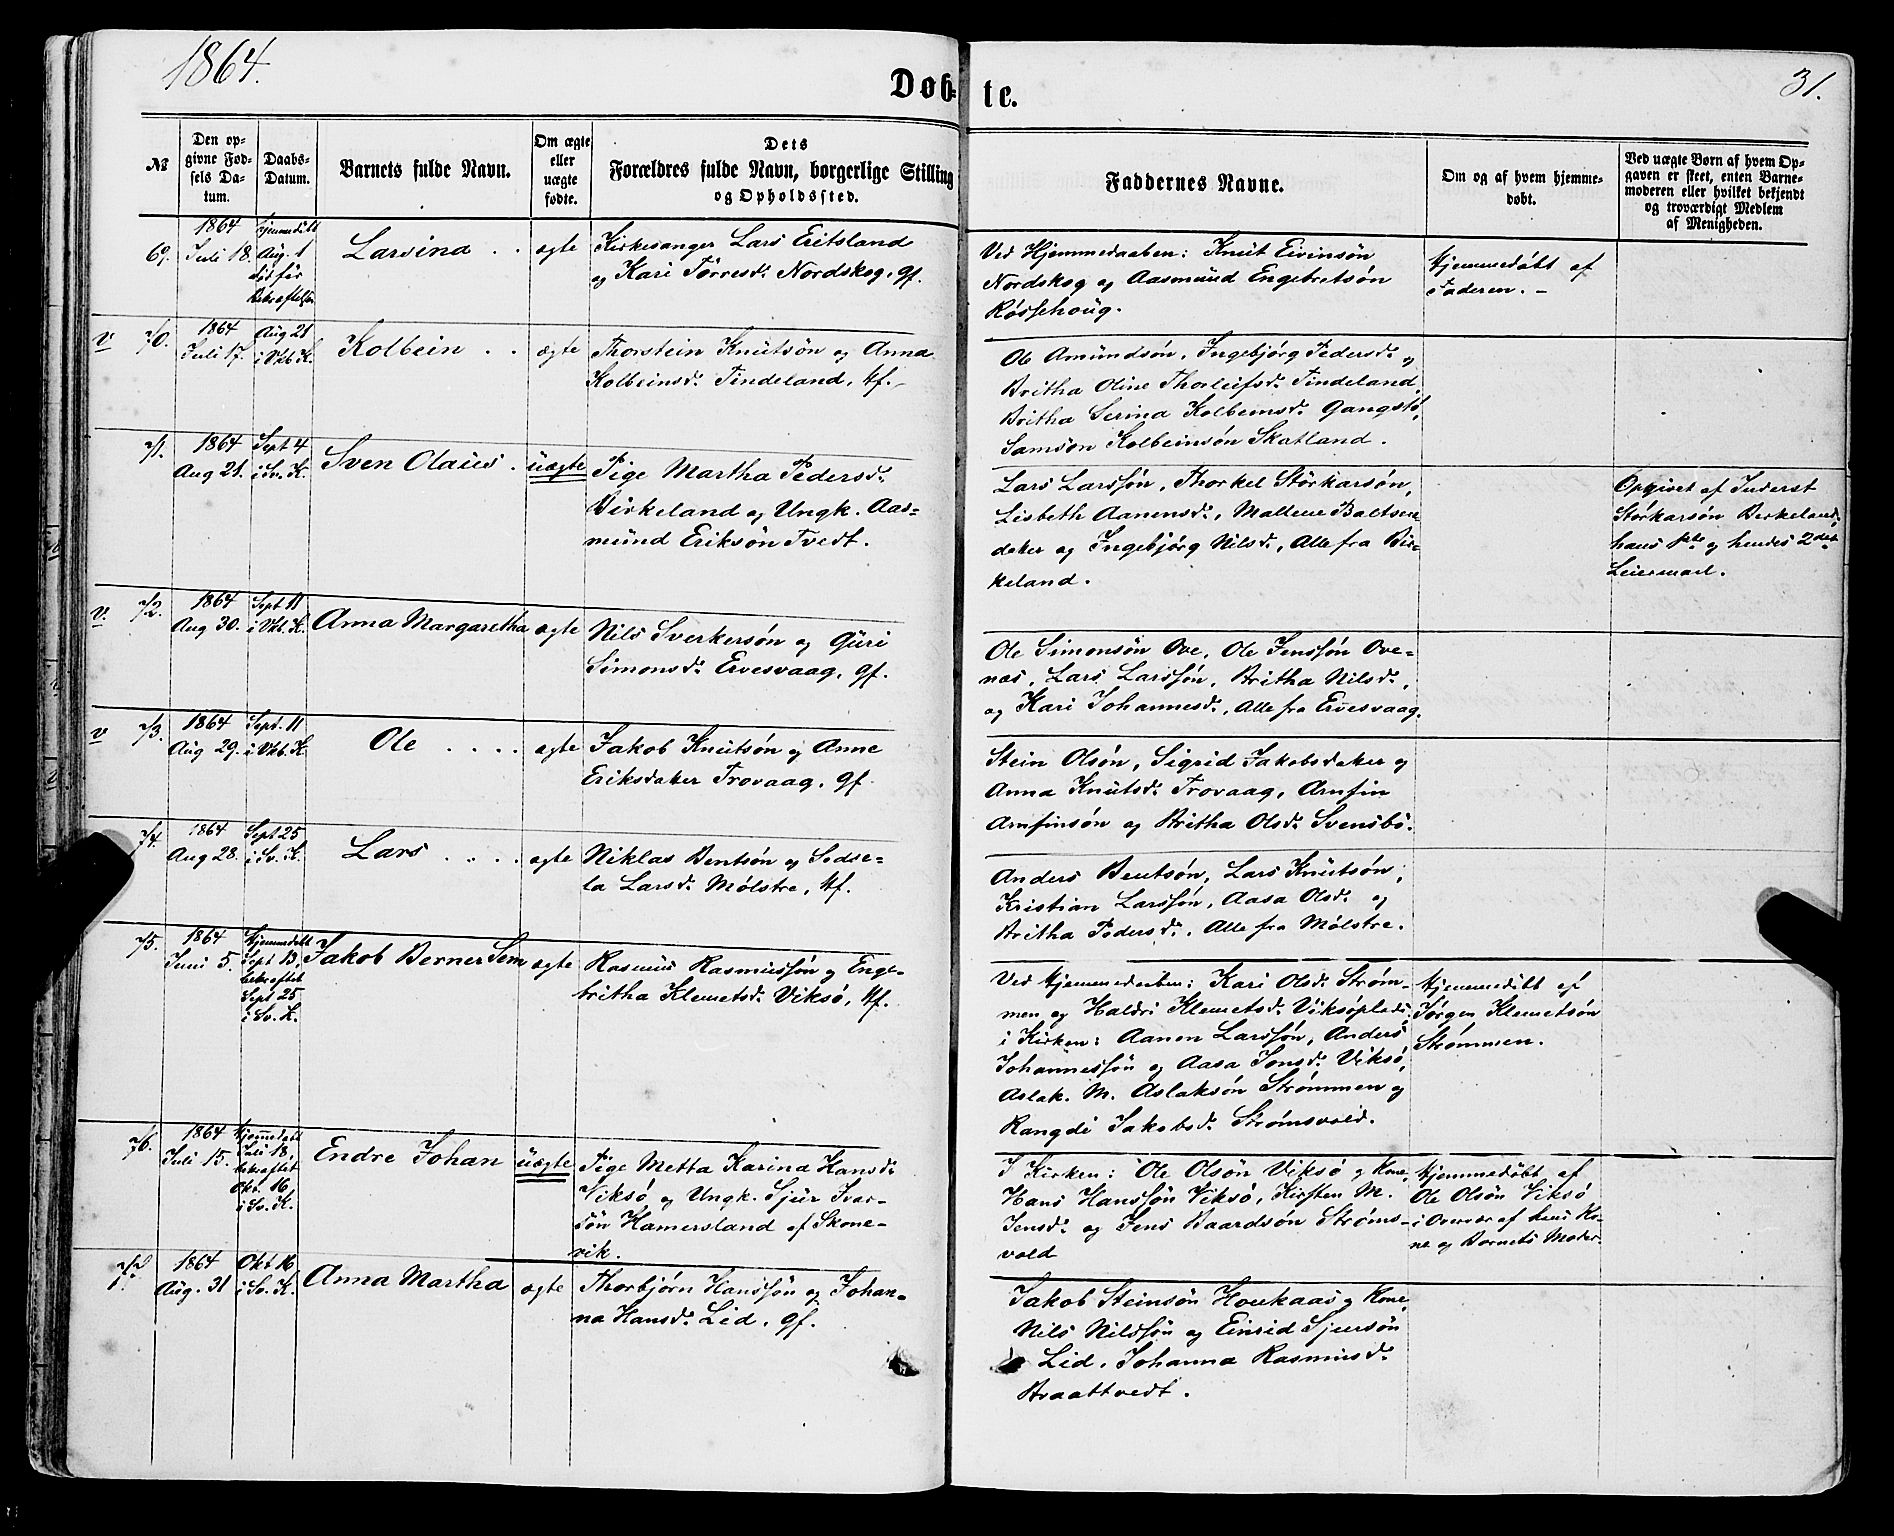 1864.
Døb-
te.
31.
№
Den op-
givne Fød-
sels Da-
tum.
Daabs-
Datum.
Barnets fulde Navn.
Om ægte
eller
uægte
fødte.
Dets
Forældres fulde Navn, borgerlige Stilling
og Opholdssted.
Faddernes Navne.
Om og af hvem hjemme-
døbt.
Ved uægte Børn af hvem Op-
gaven er skeet, enten Barne-
moderen eller hvilket bekjendt
og troværdigt Medlem
af Menigheden.
69.
1864
Juli 18.
Hjemmedöbt
Aug. 1
död för
Bekræftelsen
Larsina . .
ægte
Kirkesanger Lars Eritsland
og Kari Törresd. Nordskog, Gf.
Ved Hjemmedaaben: Knut Eivinsön
Nordskog og Aasmund Engebretsön
Røssehoug.
Hjemmedöbt af
Faderen. -
v
70.
1864
Juli 17.
Aug 21
i Vkb. K.
Kolbein . .
ægte
Thorstein Knutsön og Anna
Kolbeinsd. Tindeland, Hf.
Ole Amundsön, Ingebjörg Pedersd. og
Britha Oline Thorleifsd. Tindeland,
Britha Serina Kolbeinsd. Gangstö,
Samson Kolbeinsön Skatland.
71.
1864
Aug 21.
Sept 4
i Sv. K.
Sven Olaus .
uægte
Pige Martha Pedersd.
Birkeland og Ungk. Aas-
mund Eriksön Tvedt.
Lars Larssön, Thorkel Störkarsön,
Lisbeth Aanensd., Mallene Baltser
datter og Ingebjörg Nilsd., Alle fra Bir-
keland.
Opgivet af Inderst
Störkarsön Berkeland,
hans 1ste og hendes 2det
Leiermaal.
V.
72.
1864
Aug 30.
Sept 11
i Vkb. K.
Anna Margaretha
ægte
Nils Sverkersön og Guri
Simonsd. Ervesvaag, Gf.
Ole Simonsön Ove, Ole Jenssön Ove-
næs, Lars Larssön, Britha Nilsd.,
og Kari Johannesd., Alle fra Ervesvaag.
v
73.
1864
Aug 29.
Sept. 11
i Vkb. K.
Ole . . . .
ægte
Jakob Knutsön og Anne
Eriksdatter Trovaag, Gf.
Stein Olsön, Sigrid Jakobsdatter og
Anna Knutsd. Trovaag, Arnfin
Arnfinsön og Britha Olsd. Svensbö.
74.
1864
Aug 28.
Sept 25
i Sv. K.
Lars . . . .
ægte
Niklas Bentsön og Sedse-
la Larsd. Mölstre, Hf.
Anders Bentsön, Lars Knutsön,
Kristian Larssön, Aasa Olsd. og
Britha Pedersd., Alle fra Mölstre.
75.
1864
Juni 5.
Hjemmedøbt
Sept 13,
bekræftet
Sept 25
i Sv. K.
Jakob Berner Sem
ægte
Rasmus Rasmussön og Enge-
britha Klemetsd. Viksö, Hf.
Ved Hjemmedaaben: Kari Olsd. Ström-
men og Haldri Klemetsd. Viksöplads,
i Kirken: Aanen Larssön, Anders
Johannessön og Aasa Jonsd. Viksö,
Aslak. M. Aslaksön Strömmen og
Rangdi Jakobsd. Strömsvold.
Hjemmedöbt af
Jörgen Klemetsön
Strömmen.
76.
1864
Juli 15.
Hjemmedøbt
Juli 18,
bekræftet
Okt. 16
i Sv. K.
Endre Johan
uægte
Pige Metta Karina Hansd.
Viksö og Ungk. Sjur Ivar-
sön Hamersland af Skone-
vik.
I Kirken: Ole Olsön Viksö og Kone,
Hans Hanssön Viksö, Kirsten M.
Jensd. og Jens Baardsön Ströms-
vold
Hjemmedöbt af
Ole Olsön Viksö
i Overvær af hans Ko-
ne og Barnets Moder.
77.
1864
Aug. 31
Okt 16
i Sv. K.
Anna Martha
ægte
Thorbjørn Hanssön og Johan-
na Hansd. Lid, Gf.
Jakob Steinsön Houkaas og Kone,
Nils Nilssön og Einrid Sjursön
Lid, Johanna Rasmusd.
Braattvedt.